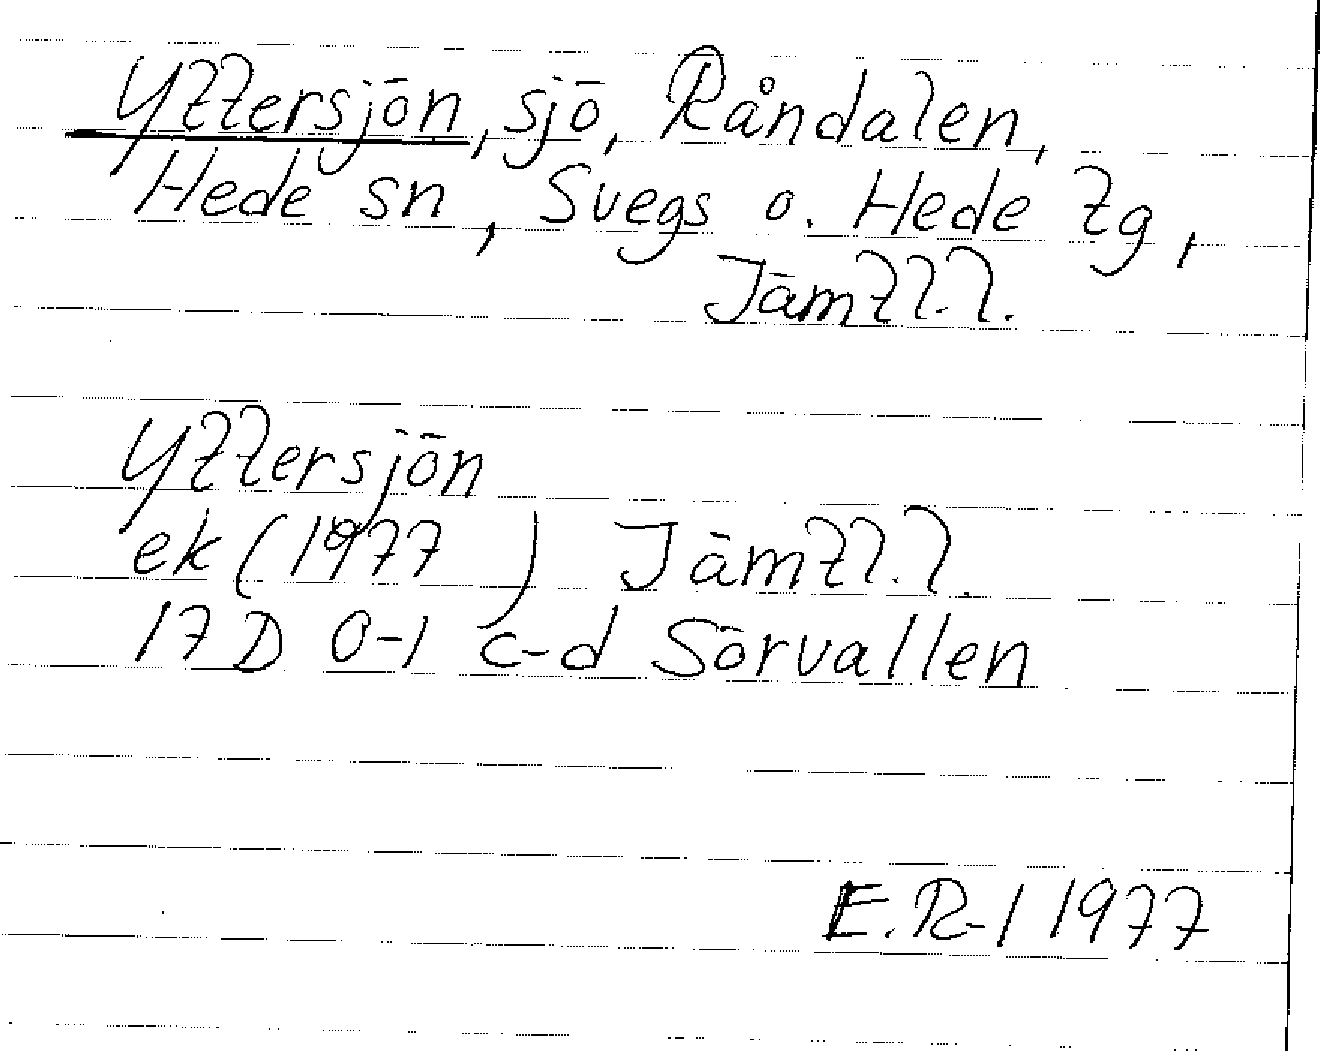 Yttersjön, sjö, Råndalen,
Hede sn, Svegs o. Hede tg,
Jämtl.l.
Yttersjön
ek (1977) Jämtl.l.
17 D 0-1 c-d Sörvallen
E.R-l 1977